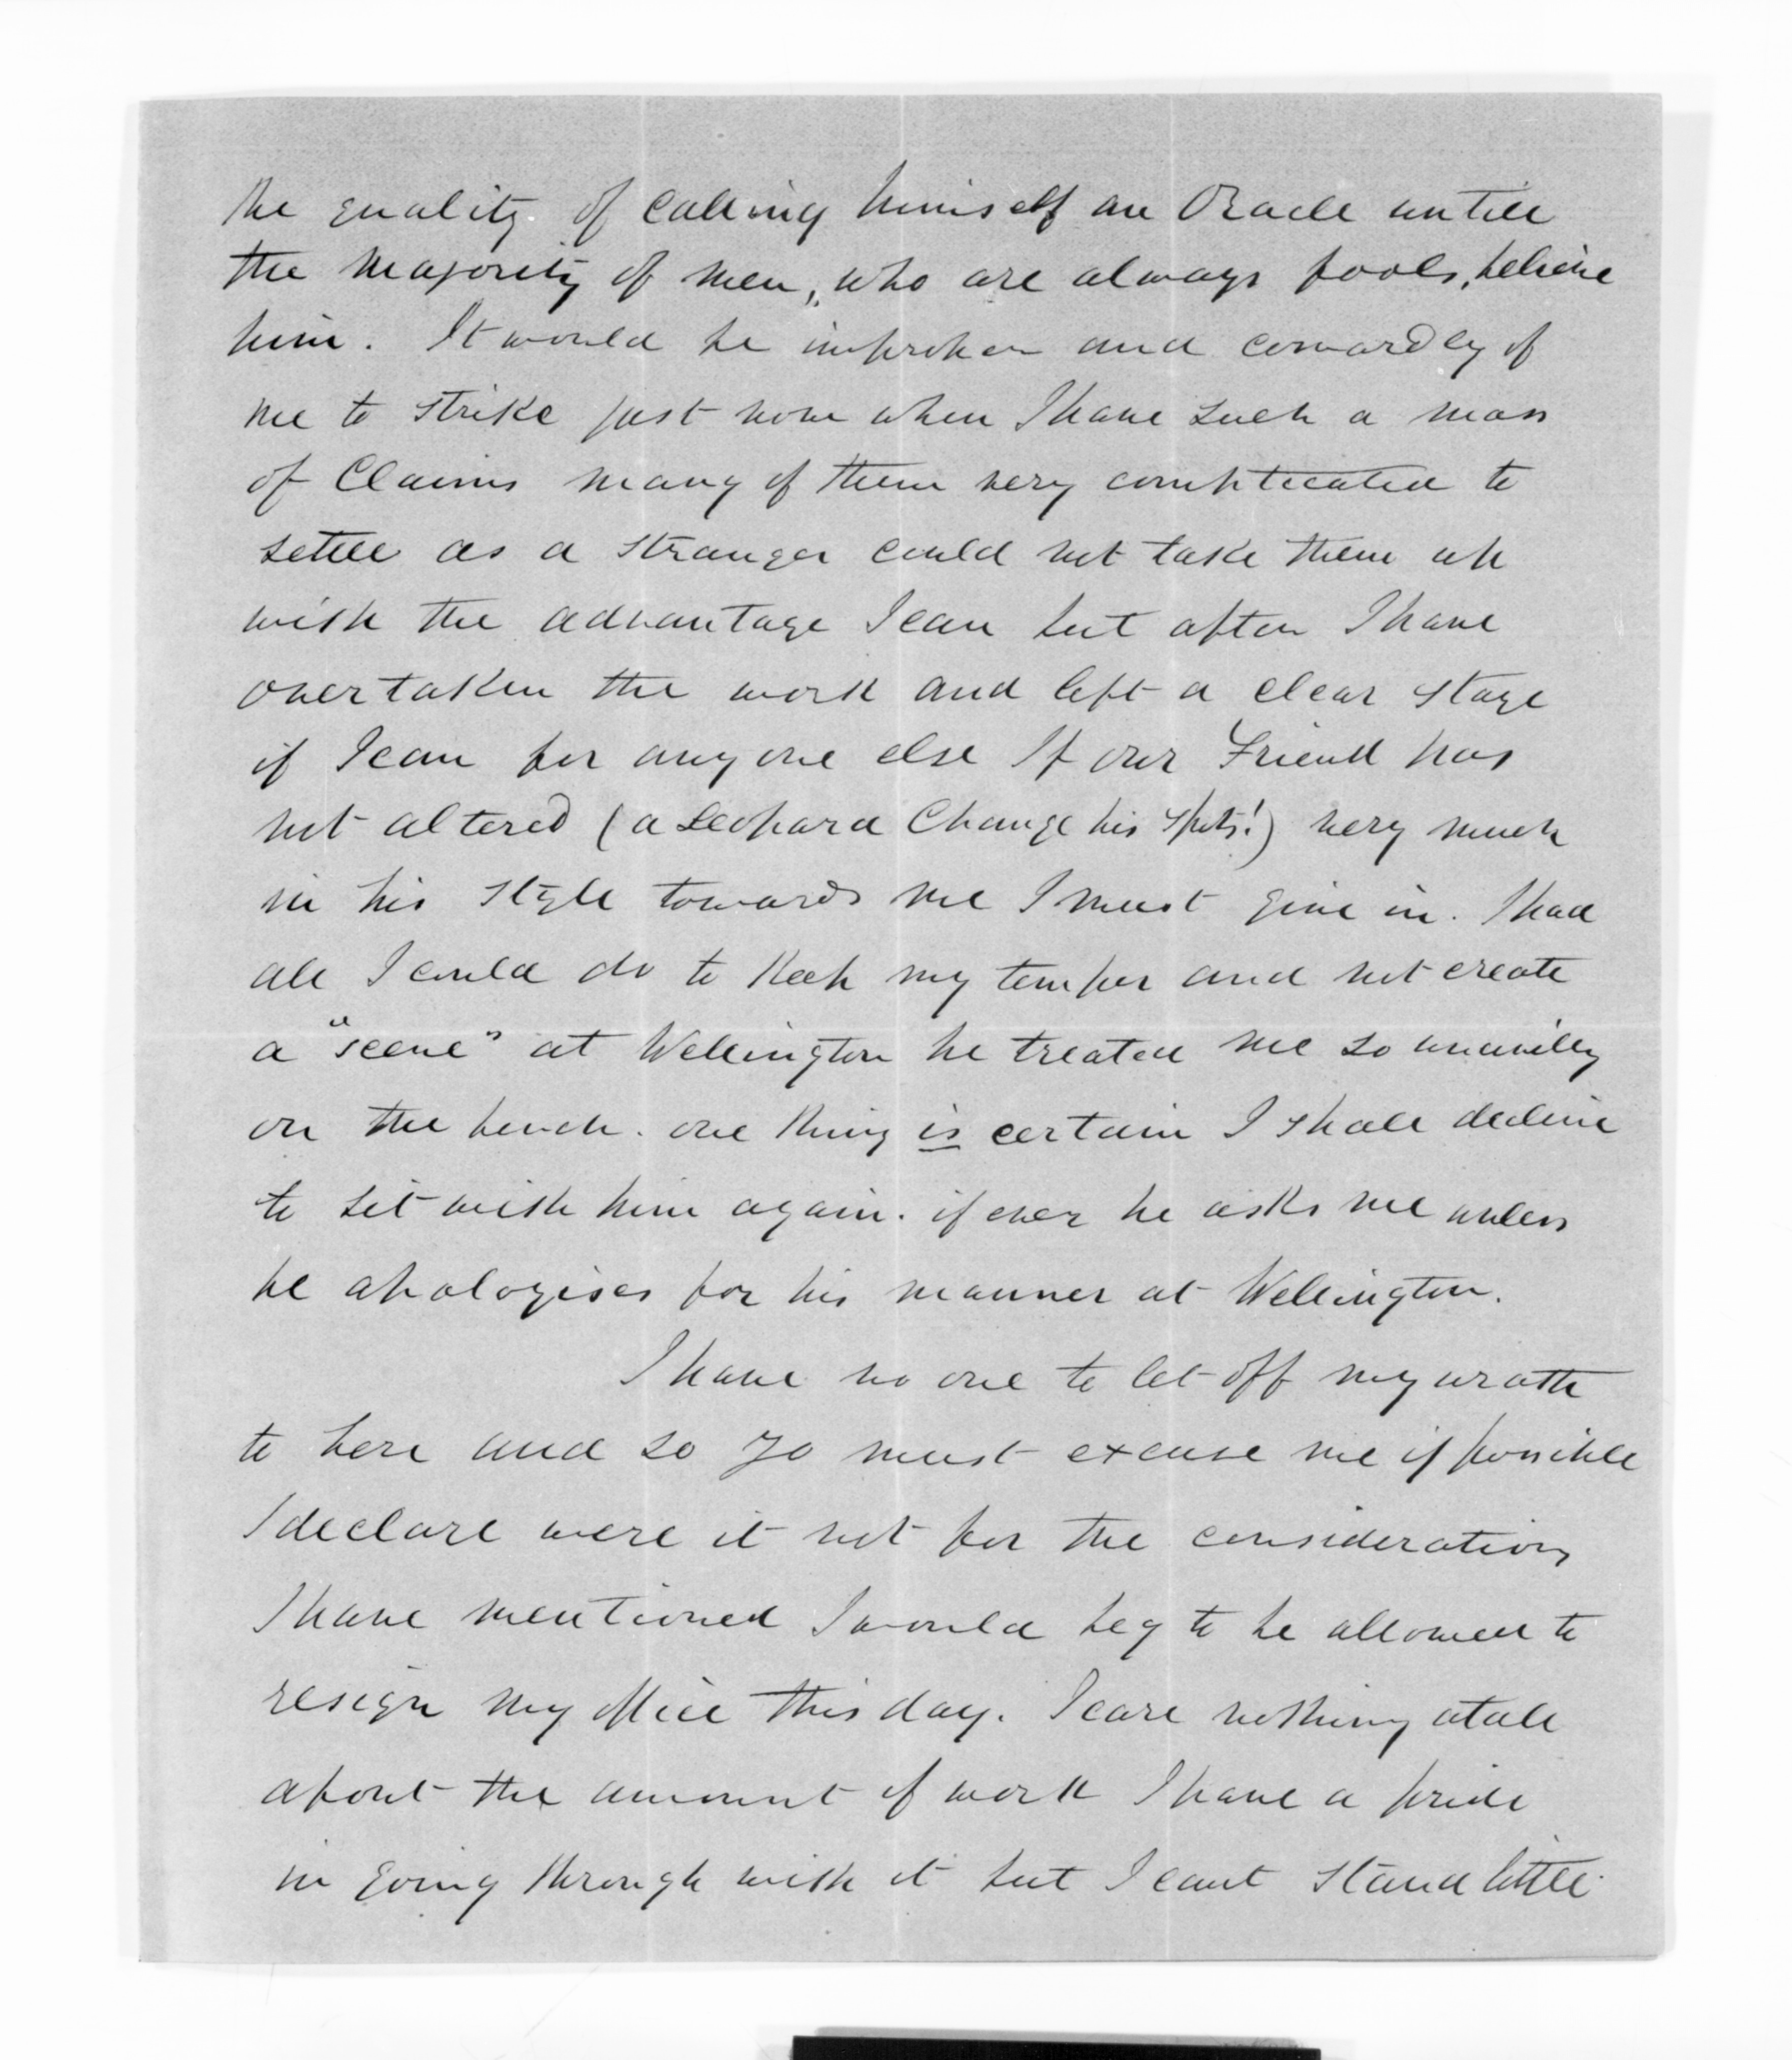 the quality. of calling himself an Oracle untill
the majority of men, who are always fools, believe
him. It would be improper and cowardly of
me to strike just now when I have such a mass
of Claims many of them very complicated to
settle as a stranger could not take them up
with the advantage I can but after I have
overtaken the work and left a clear stage
if I can for any one else If our Friend has
not altered (a Leopard Change his spots!) very much
in his style towards me I must give in. I had
all I could do to keep my temper and not create
a "scene" at Wellington he treated me so uncivilly
on the bench. one thing is certain I shall decline
to sit with him again. if ever he asks me unless
he apologises for his manner at Wellington.
I have no one to let off my wrath
to here and so yo must excuse me if possible
I declare were it not for the consideration
I have mentioned I would beg to be allowed to
resign my office this day. I care nothing atall
about the amount of work I have a pride
in going through with it but I cant stand little